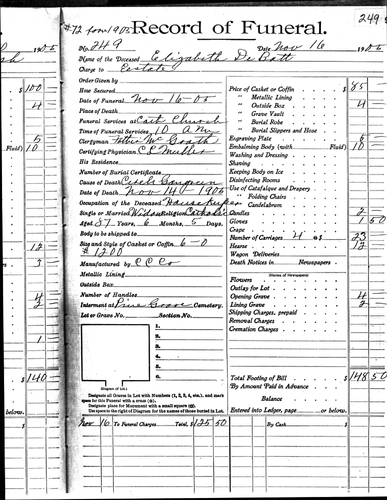 #72 from 1905
Record of Funeral.
249
No. 249
Date, Nov 16 1905
Name of the Deceased Elizabeth De Batt
Charge to Estate
Order Given by
How Secured
Date of Funeral Nov 16 - 05
Place of Death
Funeral Services at Cath Church
Time of Funeral Services 10 A.M.
Clergyman Father McGrath
Certifying Physician C C Muller
His Residence
Number of Burial Certificate
Cause of Death
Date of Death Nov 14 1905
Occupation of the Deceased Housekeeper
Single or Married Widow Religion Catholic
Aged 87 Years, 6 Months, 5 Days.
Body to be shipped to
Size and Style of Casket or Coffin 6-0
#1200
Manufactured by C C Co
Metallic Lining
Outside Box
Number of Handles
Interment at Pine Grove Cemetery.
Lot or Grave No. Section No.
1.
2.
3.
4.
5.
6.
(Diagram of Lot.)
Designate all Graves in Lot with Numbers (1, 2, 3, 4, etc.), and mark
space for this Funeral with a cross (X).
Designate place for Monument with a small square (□).
Use space to the right of Diagram for the names of those buried in Lot.
Price of Casket or Coffin $85
" Metallic Lining
" Outside Box 4
" Grave Vault
" Burial Robe
" Burial Slippers and Hose
Engraving Plate 5
Embalming Body (with Fluid) 10
Washing and Dressing
Shaving
Keeping Body on Ice
Disinfecting Rooms
Use of Catafalque and Drapery
" Folding Chairs
" Candelabrum
Candles 2
Gloves 1 50
Crape
Number of Carriages 4 23
Hearse 12
Wagon Deliveries
Death Notices in Newspapers
(Names of Newspapers)
Flowers
Outlay for Lot
Opening Grave 4
Lining Grave 2
Shipping Charges, prepaid
Removal Charges
Cremation Charges
Total Footing of Bill $148 50
By Amount Paid in Advance
Balance
Entered into Ledger, page or below.
Nov 16 To Funeral Charges Total, $125 50
By Cash $
1905
$100
4
5
Fluid) 10
12
3
4
2
1
$140
or below.
$